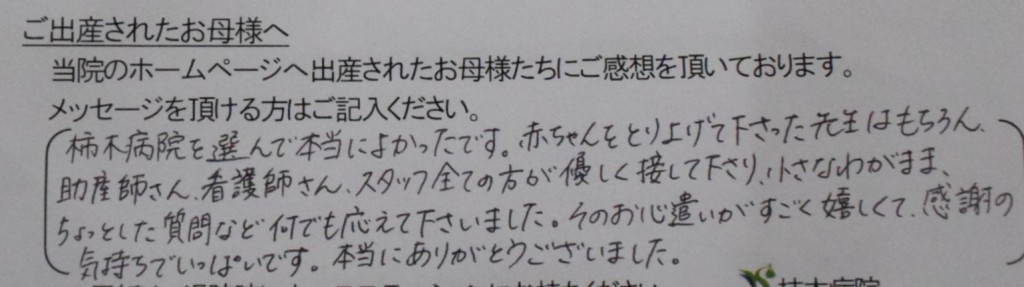 ご出産されたお母様へ
当院のホームページへ出産されたお母様たちにご感想を頂いております。
メッセージを頂ける方はご記入ください。
柿木病院を選んで本当によかったです。赤ちゃんをとり上げて下さった先生はもちろん、
助産師さん、看護師さん、スタッフ全ての方が優しく接して下さり、小さなわがまま、
ちょっとした質問など何でも応えて下さいました。そのお心遣いがすごく嬉しくて、感謝の
気持ちでいっぱいです。本当にありがとうございました。